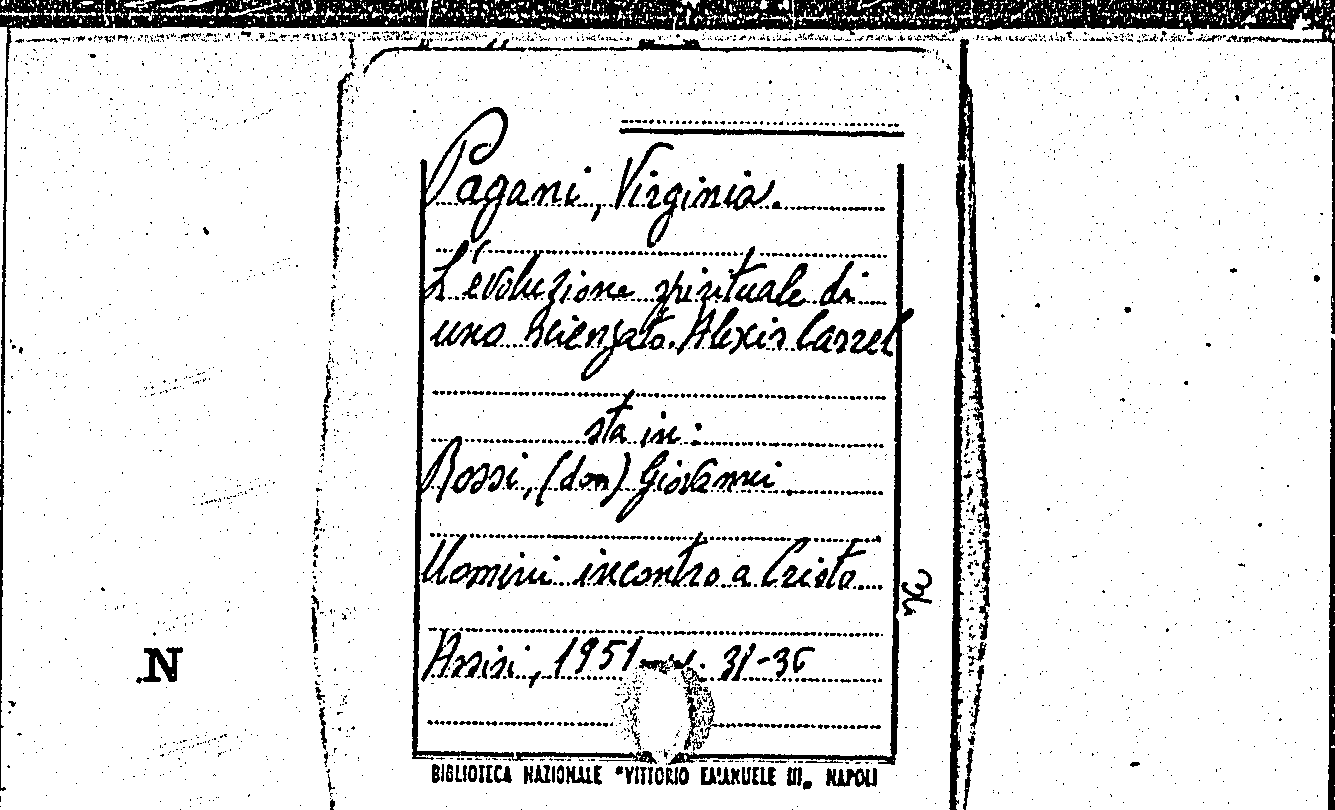 Pagani, Virginia.
L'evoluzione spirituale di
uno scienzato. Alexis Carrel
sta in:
Rossi, (don) Giovanni
Uomini incontro a Cristo
Assisi, 1951 31-36
.N
BIBLIOTECA NAZIONALE "VITTORIO EMANUELE III" NAPOLI